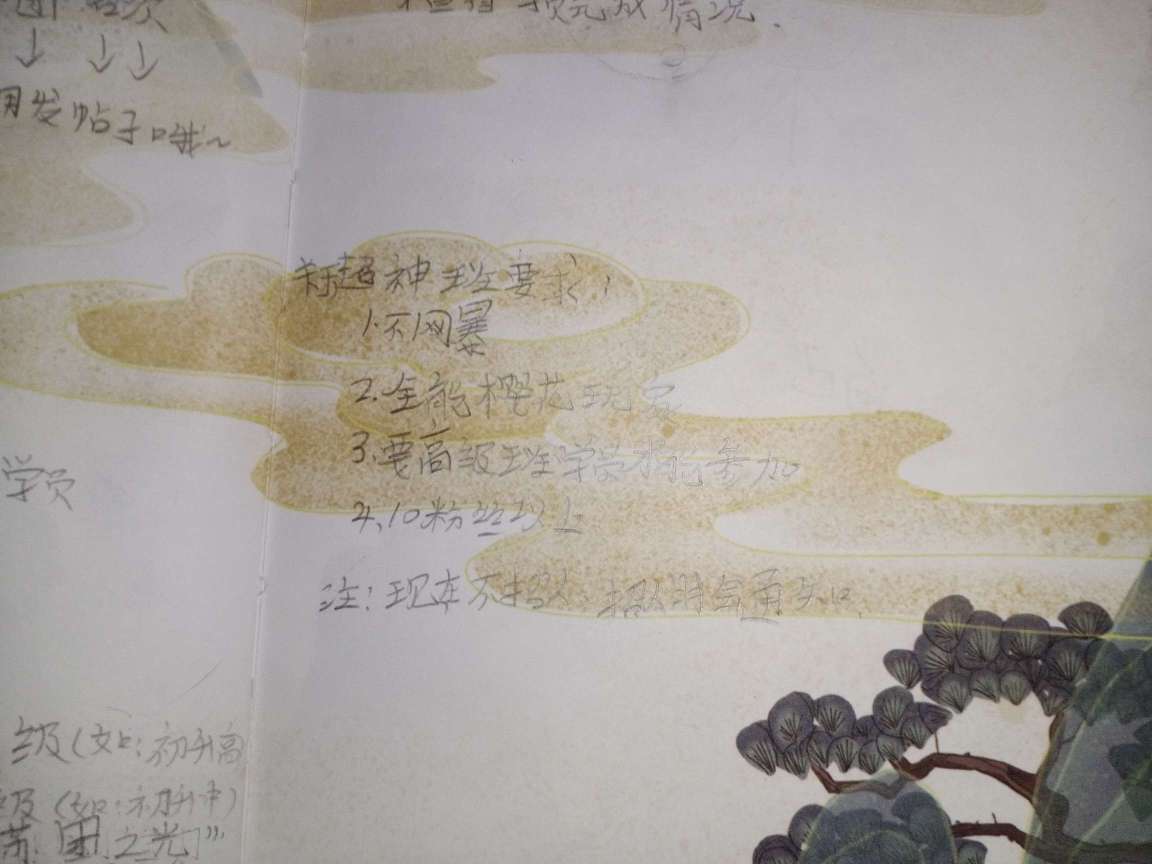 查看 完成情况.
↓ ↓↓
用发帖子哦~
超神班要求:
1.不网暴
2.全能樱花玩家
3.要高级班学员才能参加
4.10粉丝以上
学员
注:现在不招人 招人时会再头口
级(如:初升高
级(如:初升中)
团之光"